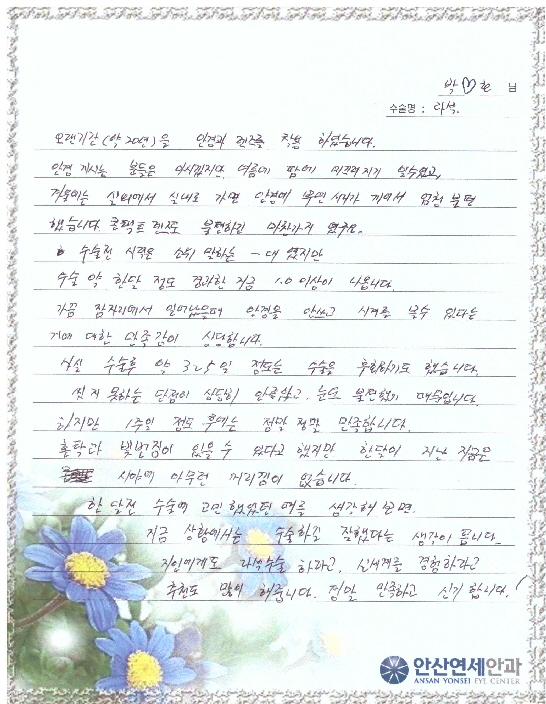 박♡호 님
수술명 : 라섹.
오랜기간 (약 20년)을 안경과 렌즈를 착용 하였습니다.
안경 끼시는 분들은 아시겠지만, 여름에 땀에 미끄러지기 일수였고,
겨울에는 실외에서 실내로 가면 안경에 하얀 서리가 끼여서 엄청 불편
했습니다. 콘택트 렌즈도 불편하긴 마찬가지 였구요.
수술전 시력은 소위 말하는 - 대 였지만
수술 약 한달 정도 경과한 지금 1.0 이상이 나옵니다.
가끔 잠자리에서 일어났을때 안경을 안쓰고 시계를 볼수 있다는
거에 대한 만족감이 상당합니다.
사실 수술후 약 3~5일 정도는 수술을 후회하기도 했습니다.
씻지 못하는 단점이 상당히 안좋았고, 눈도 불편했기 때문입니다.
하지만 1주일 정도 후에는 정말 정말 만족합니다.
혼탁과 빛번짐이 있을 수 있다고 했지만 한달이 지난 지금은
시야에 아무런 거리낌이 없습니다.
한 달전 수술에 고민 했었던 때를 생각해 보면.
지금 상황에서는 수술하길 잘했다는 생각이 듭니다.
지인에게도 라섹수술 하라고, 신세계를 경험하라고
추천도 많이 해줍니다. 정말 만족하고 신기 합니다!
안산연세안과
ANSAN YONSEI EYE CENTER